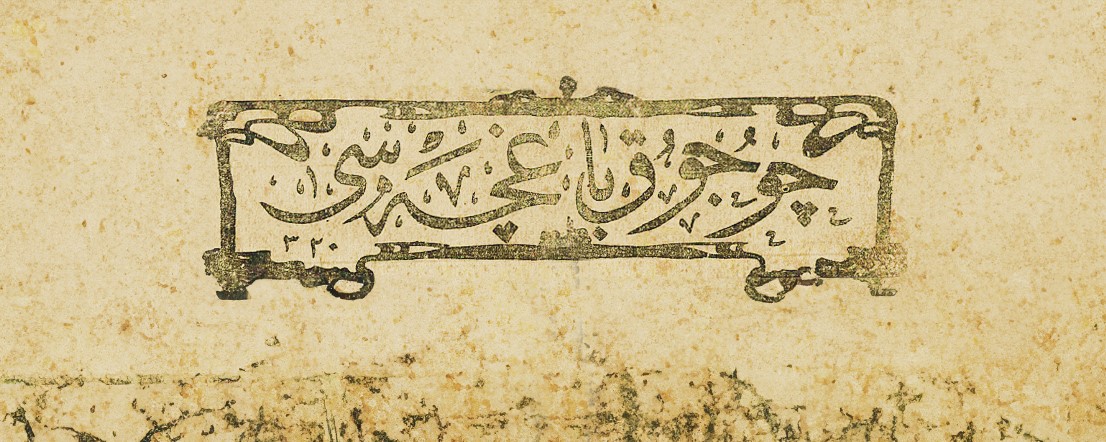 چوجوق باغچه‌سی
٣٢٠